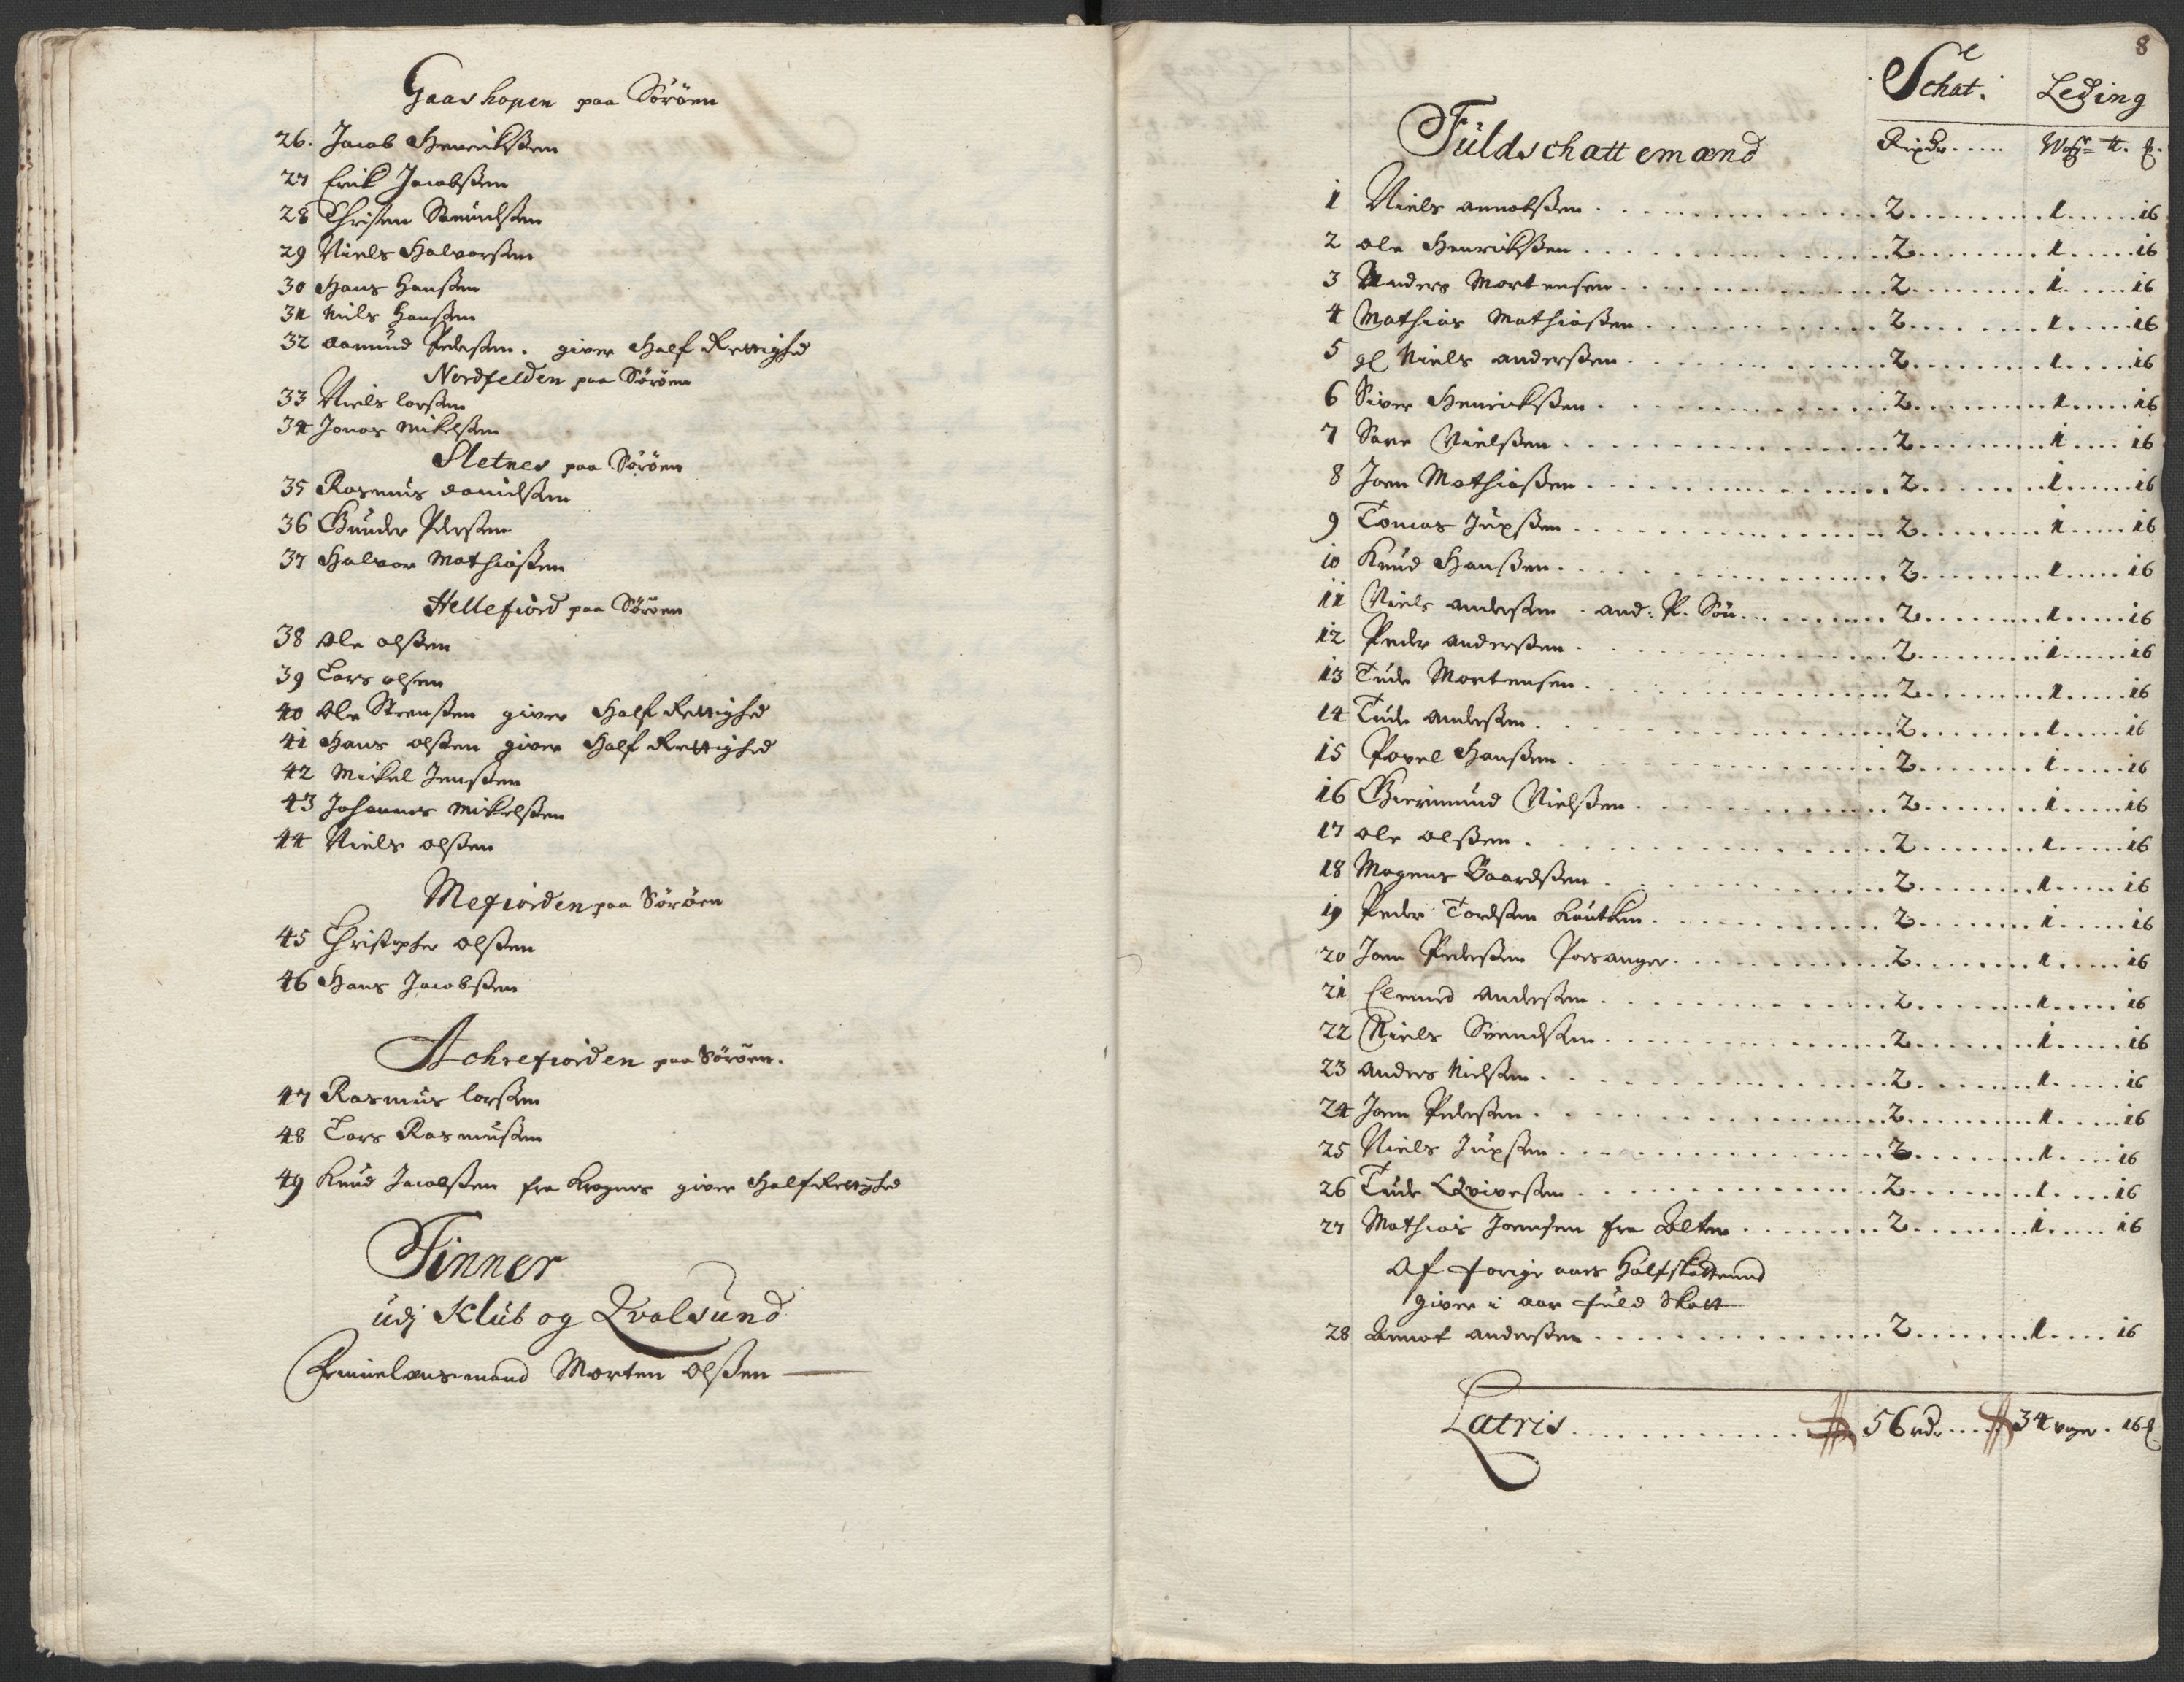 Gaashopen paa Söröen
26. Jacob Henrichßen
27 Erik Jacobßen
28 Christen
29 Niels Halvorßen
30 Hans Hanßen
31 Niels Hanßen
32 Aamund Pederßen. giver Half Rettighed
Nordfelden paa Söröen
33 Niels Larßen
34 Jonas Mikelßen
Sletnes paa Söröen
35 Rasmus Danielßen
36 Gunder Pederßen
37 Halvor Mathiaßen
Hellefiord paa Söröen
38 Ole Olßen
39 Lars Olsen
40 Ole Steenßen giver Half Rettighed
41 Hans Olßen giver Half Rettighed
42 Mickel Jenßen
43 Johannes Mickelßen
44 Niels Olßen
Mefiorden paa Söröen
45 Christopher Olßen
46 Hans Jacobßen
Achrefiorden paa Söröen.
47 Rasmus Larßen
48 Lars Rasmußen
49 Knud Jacobßen fra giver Half Rettighed
Finner
udj Klub og Qvalsund
Morten Olßen
8
Schat. Leding
Fuldschattemænd Rixdr..... Woger ℔.
1 Niels 2 1 16
2 Ole Henrichßen 2 1 16
3 Anders Mortensen 2 1 16
4 Mathias Mathiaßen 2 1 16
5 gl Niels Anderßen 2 1 16
6 Siver Henrichßen 2 1 16
7 Sare Nielßen 2 1 16
8 Joen Mathiaßen 2 1 16
9 Tomas Jupßen 2 1 16
10 Knud Hanßen 2 1 16
11 Niels Anderßen. And: P. Sön 2 1 16
12 Peder Anderßen 2 1 16
13 Tude Mortensen 2 1 16
14 Tude Anderßen 2 1 16
15 Povel Hanßen 2 1 16
16 Giermund Nielßen 2 1 16
17 Ole Olßen 2 1 16
18 Mogens Baardßen 2 1 16
19 Peder Tordßen 2 1 16
20 Joen Pederßen Porsanger 2 1 16
21 Clemed Anderßen 2 1 16
22 Niels Svendßen 2 1 16
23 Anders Nielßen 2 1 16
24 Joen Pederßen 2 1 16
25 Niels Jupßen 2 1 16
26 Tude Qviveßen 2 1 16
27 Mathias Joensen fra Alten 2 1 16
Af forige aars Halfskattemend
giver i aar fuld Skatt
28 Amot Anderßen 2 1 16
Latris 56 rdr 34 voger. 16